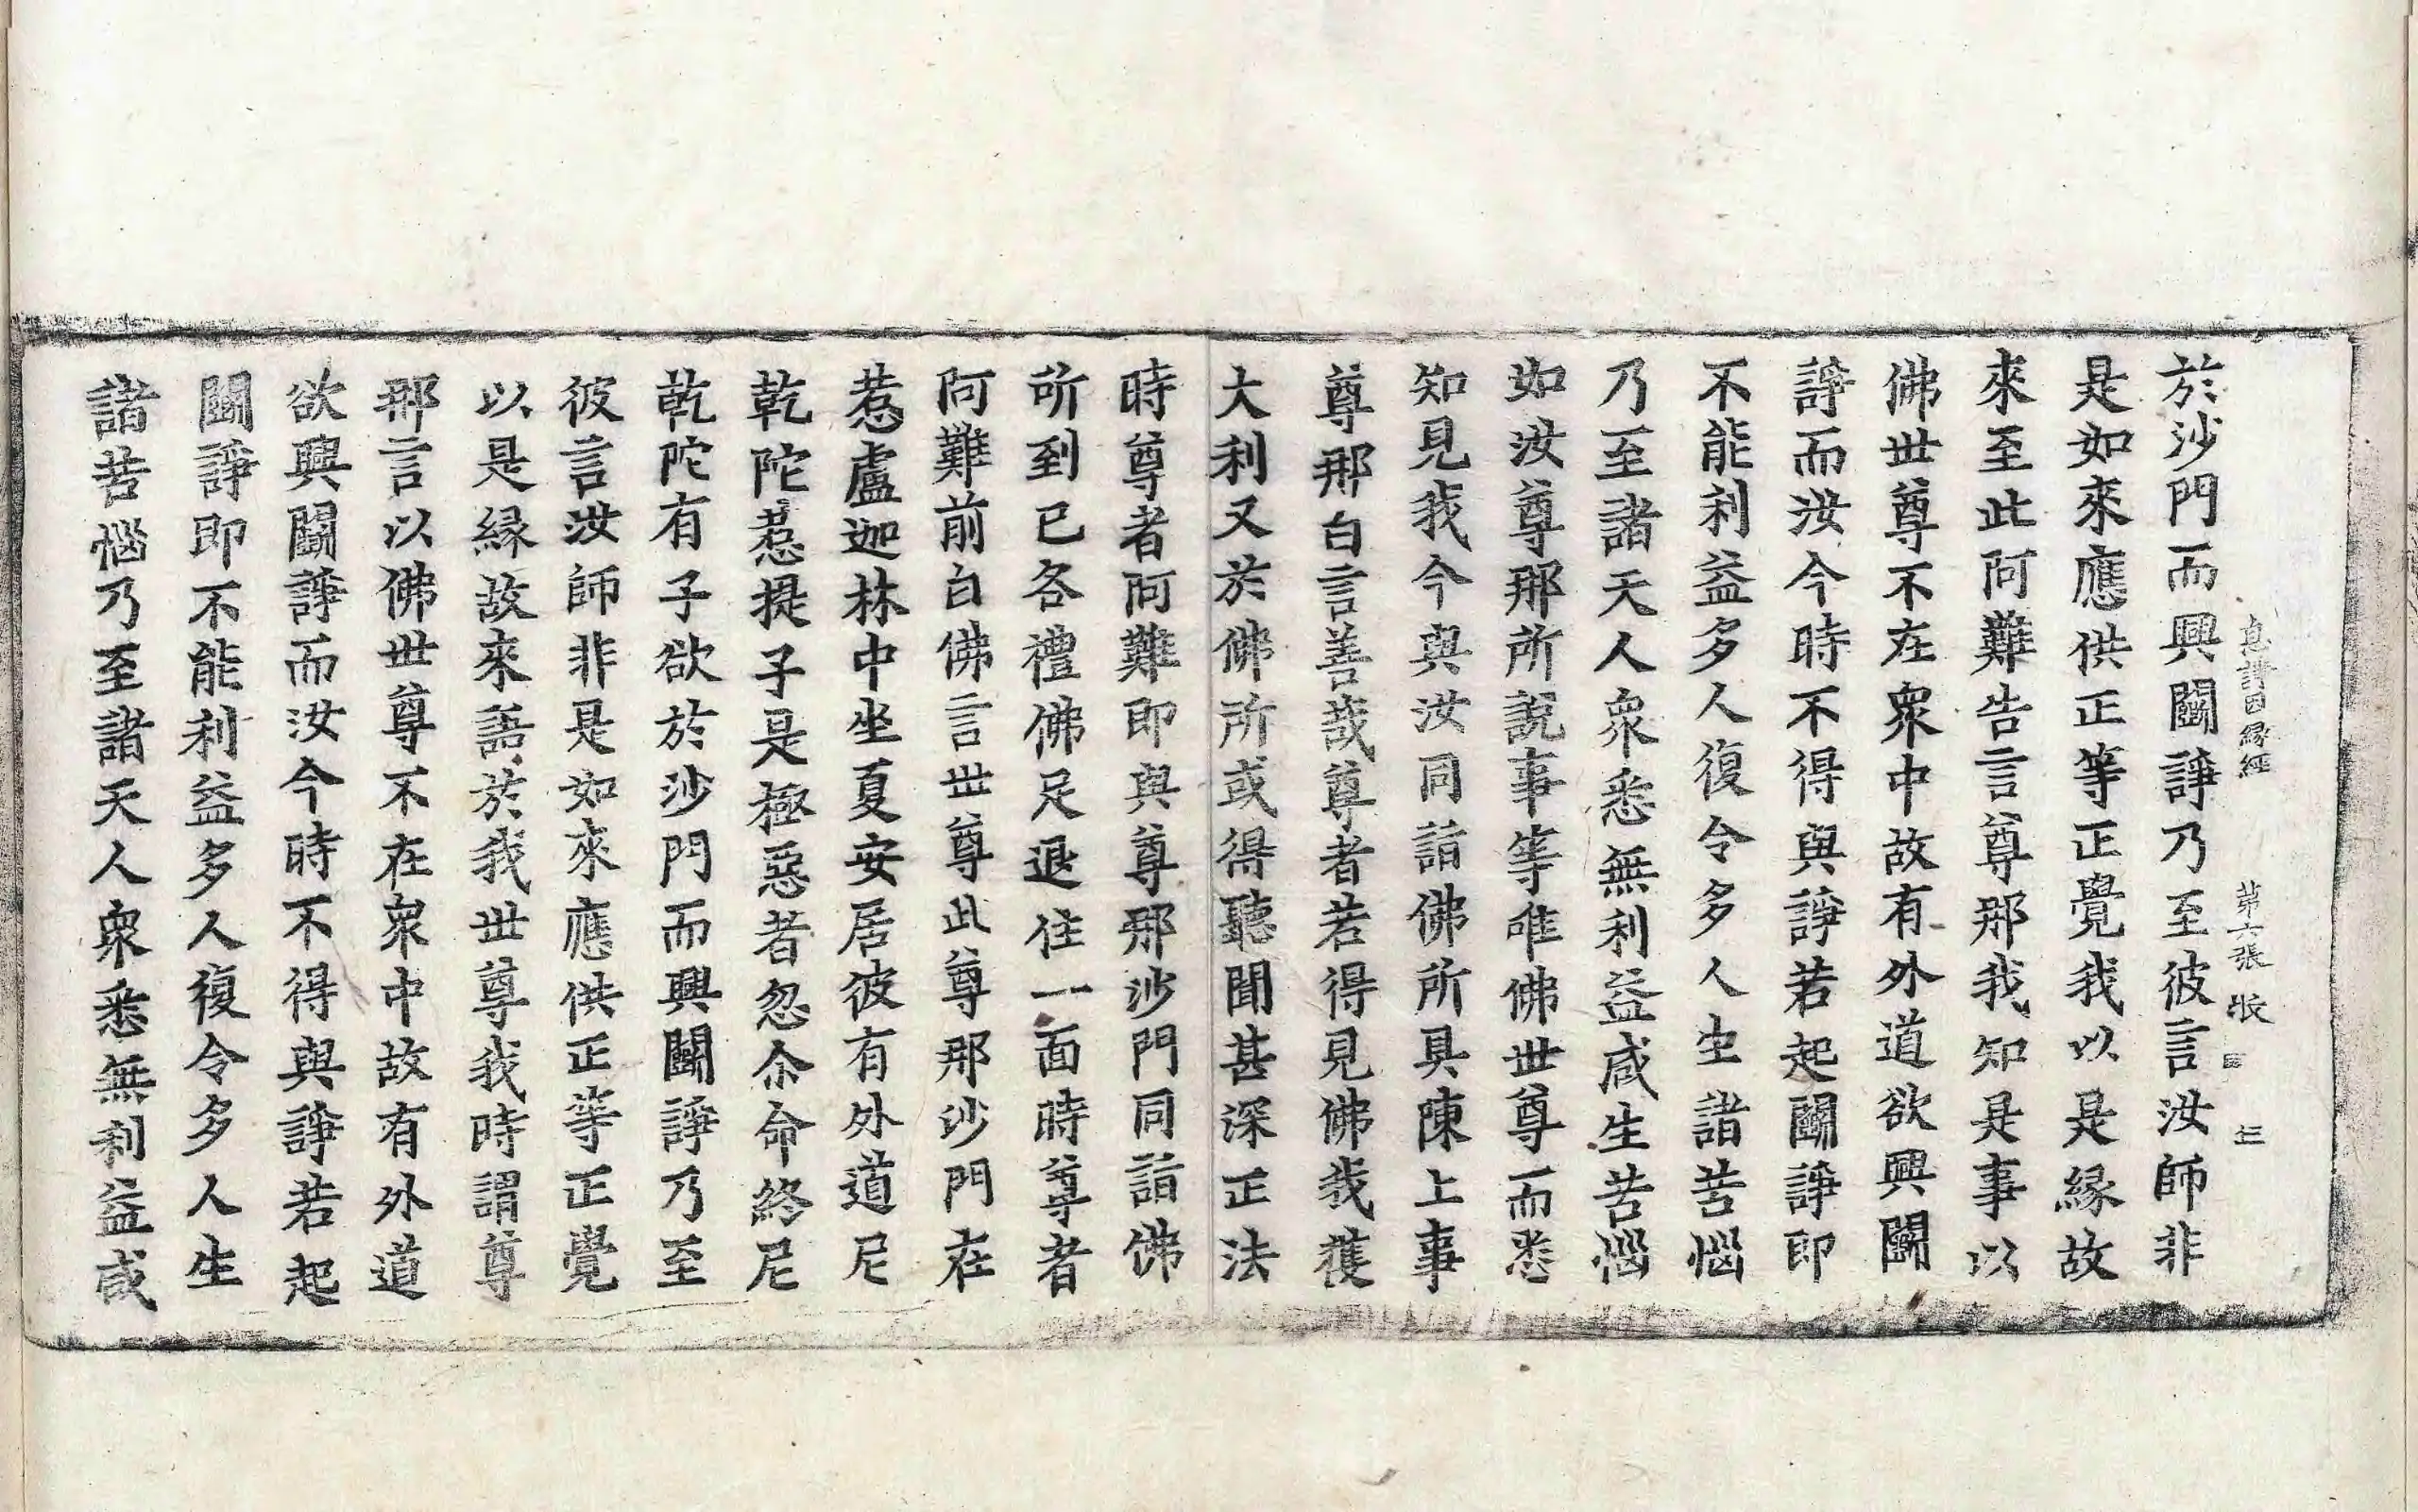 於沙門而興鬪諍乃至彼言汝師非
息諍因縁經 第六張 𭣣
是如來應供正等正覺我以是縁故
來至此阿難告言尊那我知是事以
佛世尊不在衆中故有外道欲興鬪
諍而汝今時不得與諍若起鬪諍即
不能利益多人復令多人生諸苦惱
乃至諸天人衆悉無利益咸生苦惱
如汝尊那所說事等唯佛世尊而悉
知見我今與汝同詣佛所具陳上事
尊那白言善哉尊者若得見佛我獲
大利又於佛所或得聽聞甚深正法
時尊者阿難即與尊那沙門同詣佛
所到已各禮佛足退住一面時尊者
阿難前白佛言世尊此尊那沙門在
惹盧迦林中坐夏安居彼有外道尼
乾陀惹提子是極惡者忽尒命終尼
乾陀有子欲於沙門而興鬪諍乃至
彼言汝師非是如來應供正等正覺
以是縁故來語於我世尊我時謂尊
那言以佛世尊不在衆中故有外道
欲興鬪諍而汝今時不得與諍若起
鬪諍即不能利益多人復令多人生
諸苦惱乃至諸天人衆悉無利益咸